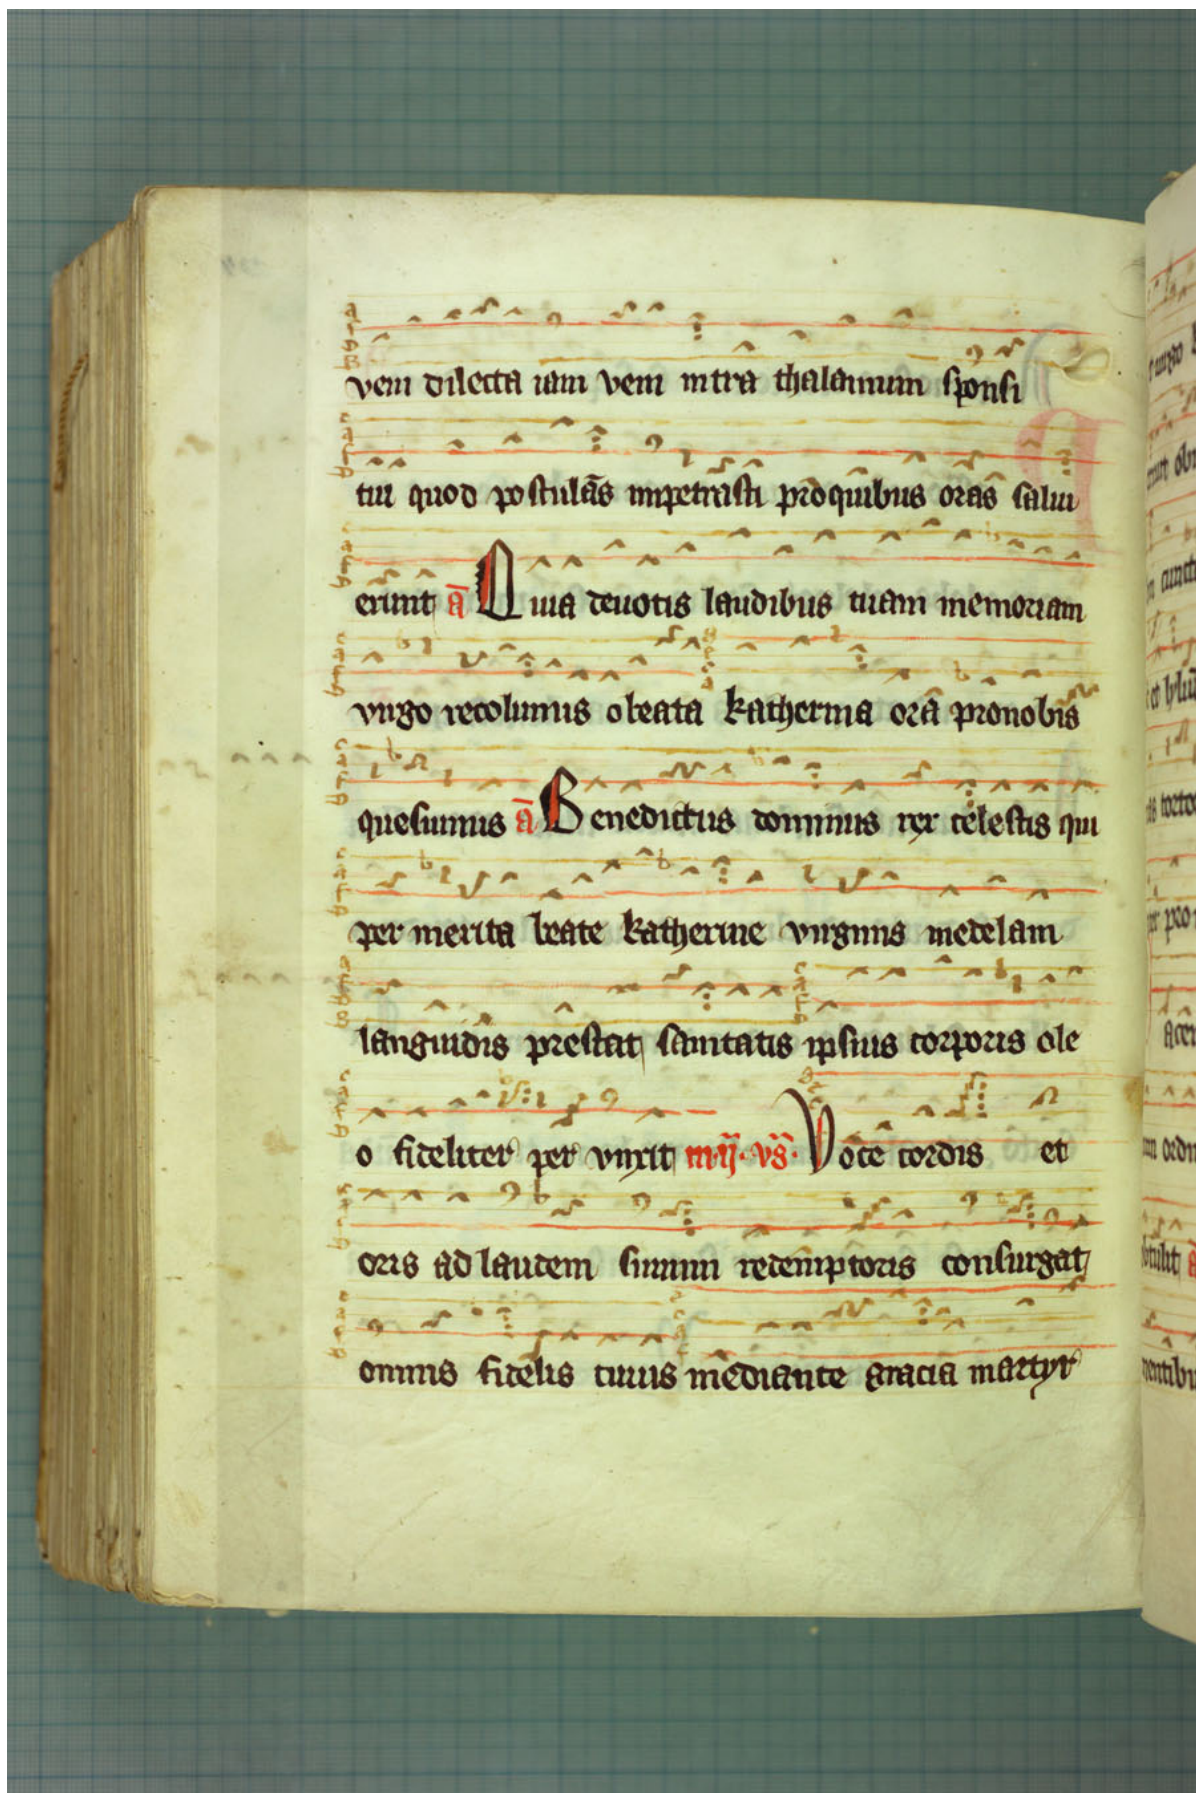 veni dilecta iam veni intra thalamum sponsi
tui quod postulas impetrasti pro quibus oras salui
erunt ā Quia deuotis laudibus tuam memoriam
virgo recolimus o beata katherina ora pro nobis
quesumus ā Benedictus dominus rex celestis qui
per merita beate katherine virginis medelam
languidis prestat sanitatis ipsius corporis ole
o fideliter per vnxit In ij. vs. Voce cordis et
oris ad laudem summi redemptoris consurgat
omnis fidelis cuius mediante gracia martyr